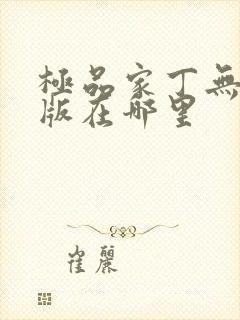 極品家丁無
版在哪里
崔麗